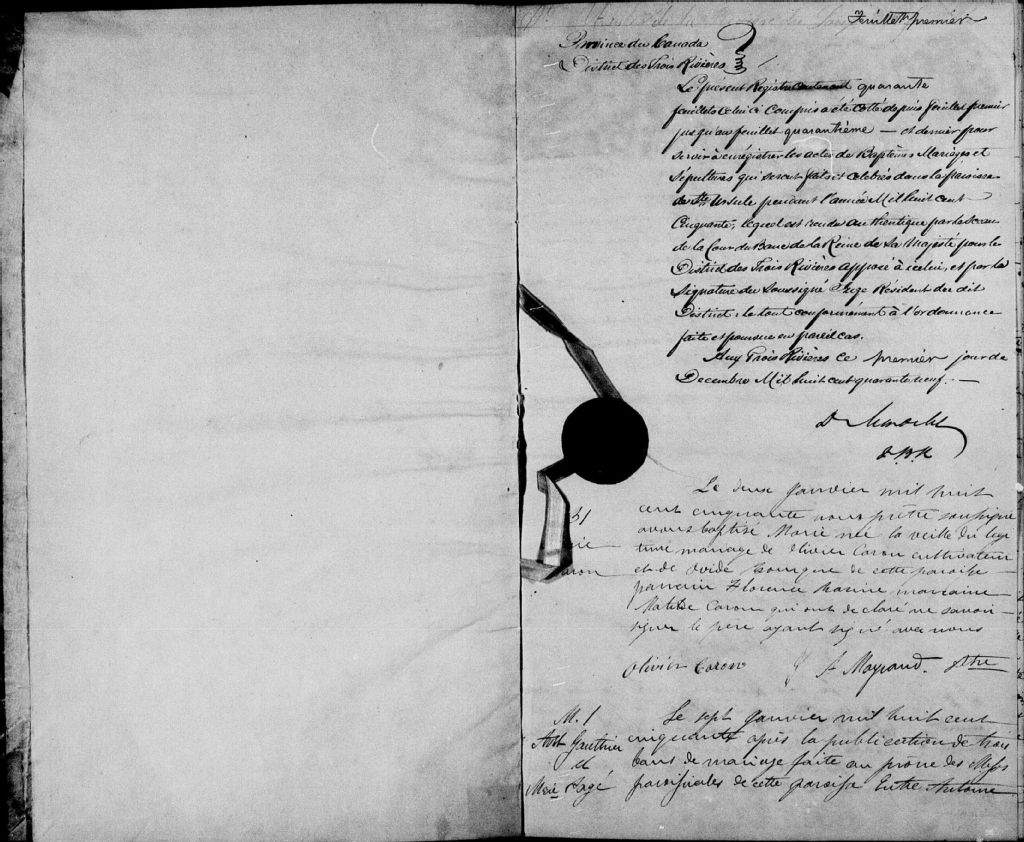 Feuillet premier
Province du Canada
District des Trois Rivières
Le présent Registre contenant quarante
feuillets celui ci compris a été cotté depuis feuillet premier
jusqu'au feuillet quarantième — et dernier pour
servir à enrégistrer les actes de Baptêmes Mariages et
Sépultures qui seront faits et célebrés dans la paroisse
de Ste Ursule pendant l'année Mil huit cent
Cinquante, lequel est rendu authentique par le Sceau
de la Cour du Banc de la Reine de Sa Majesté pour le
District des Trois Rivières apposé à icelui, et par la
Signature du Soussigné Juge Résident du dit
District; le tout conformément à l'ordonnance
faite et pourvue en pareil cas.
Aux Trois Rivières ce premier jour de
Decembre Mil huit cent quarante neuf. —
Le deux Janvier mil huit
cent cinquante nous prêtre soussigné
avons baptisé Marie née la veille du legi
time mariage de Olivier Caron cultivateur
et de Ovide de cette paroisse
parrain Florence marraine
Matilde Caron qui ont declaré ne savoir
signer le père ayant signé avec nous
B1
rie
aron
Olivier Caron
A Mayrand. Ptre
M. 1
Ant Gauthier
et
Marie Sagé
Le sept Janvier mil huit cent
cinquante après la publication de trois
bans de mariage faite au prône des Messes
paroissiales de cette paroisse Entre Antoine